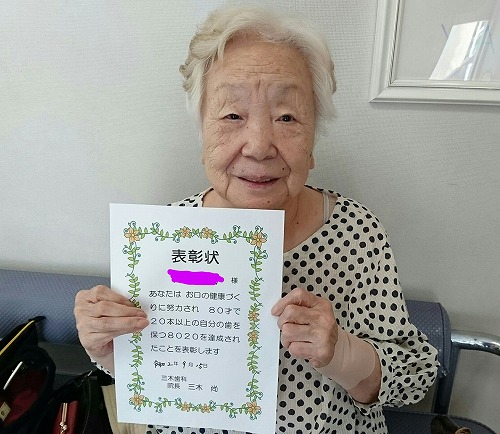 表彰状
様
あなたは お口の健康づく
りに努力され 80才で
20本以上の自分の歯を
保つ8020を達成され
たことを表彰します
令和2年9月15日
三木歯科
院長 三木 尚